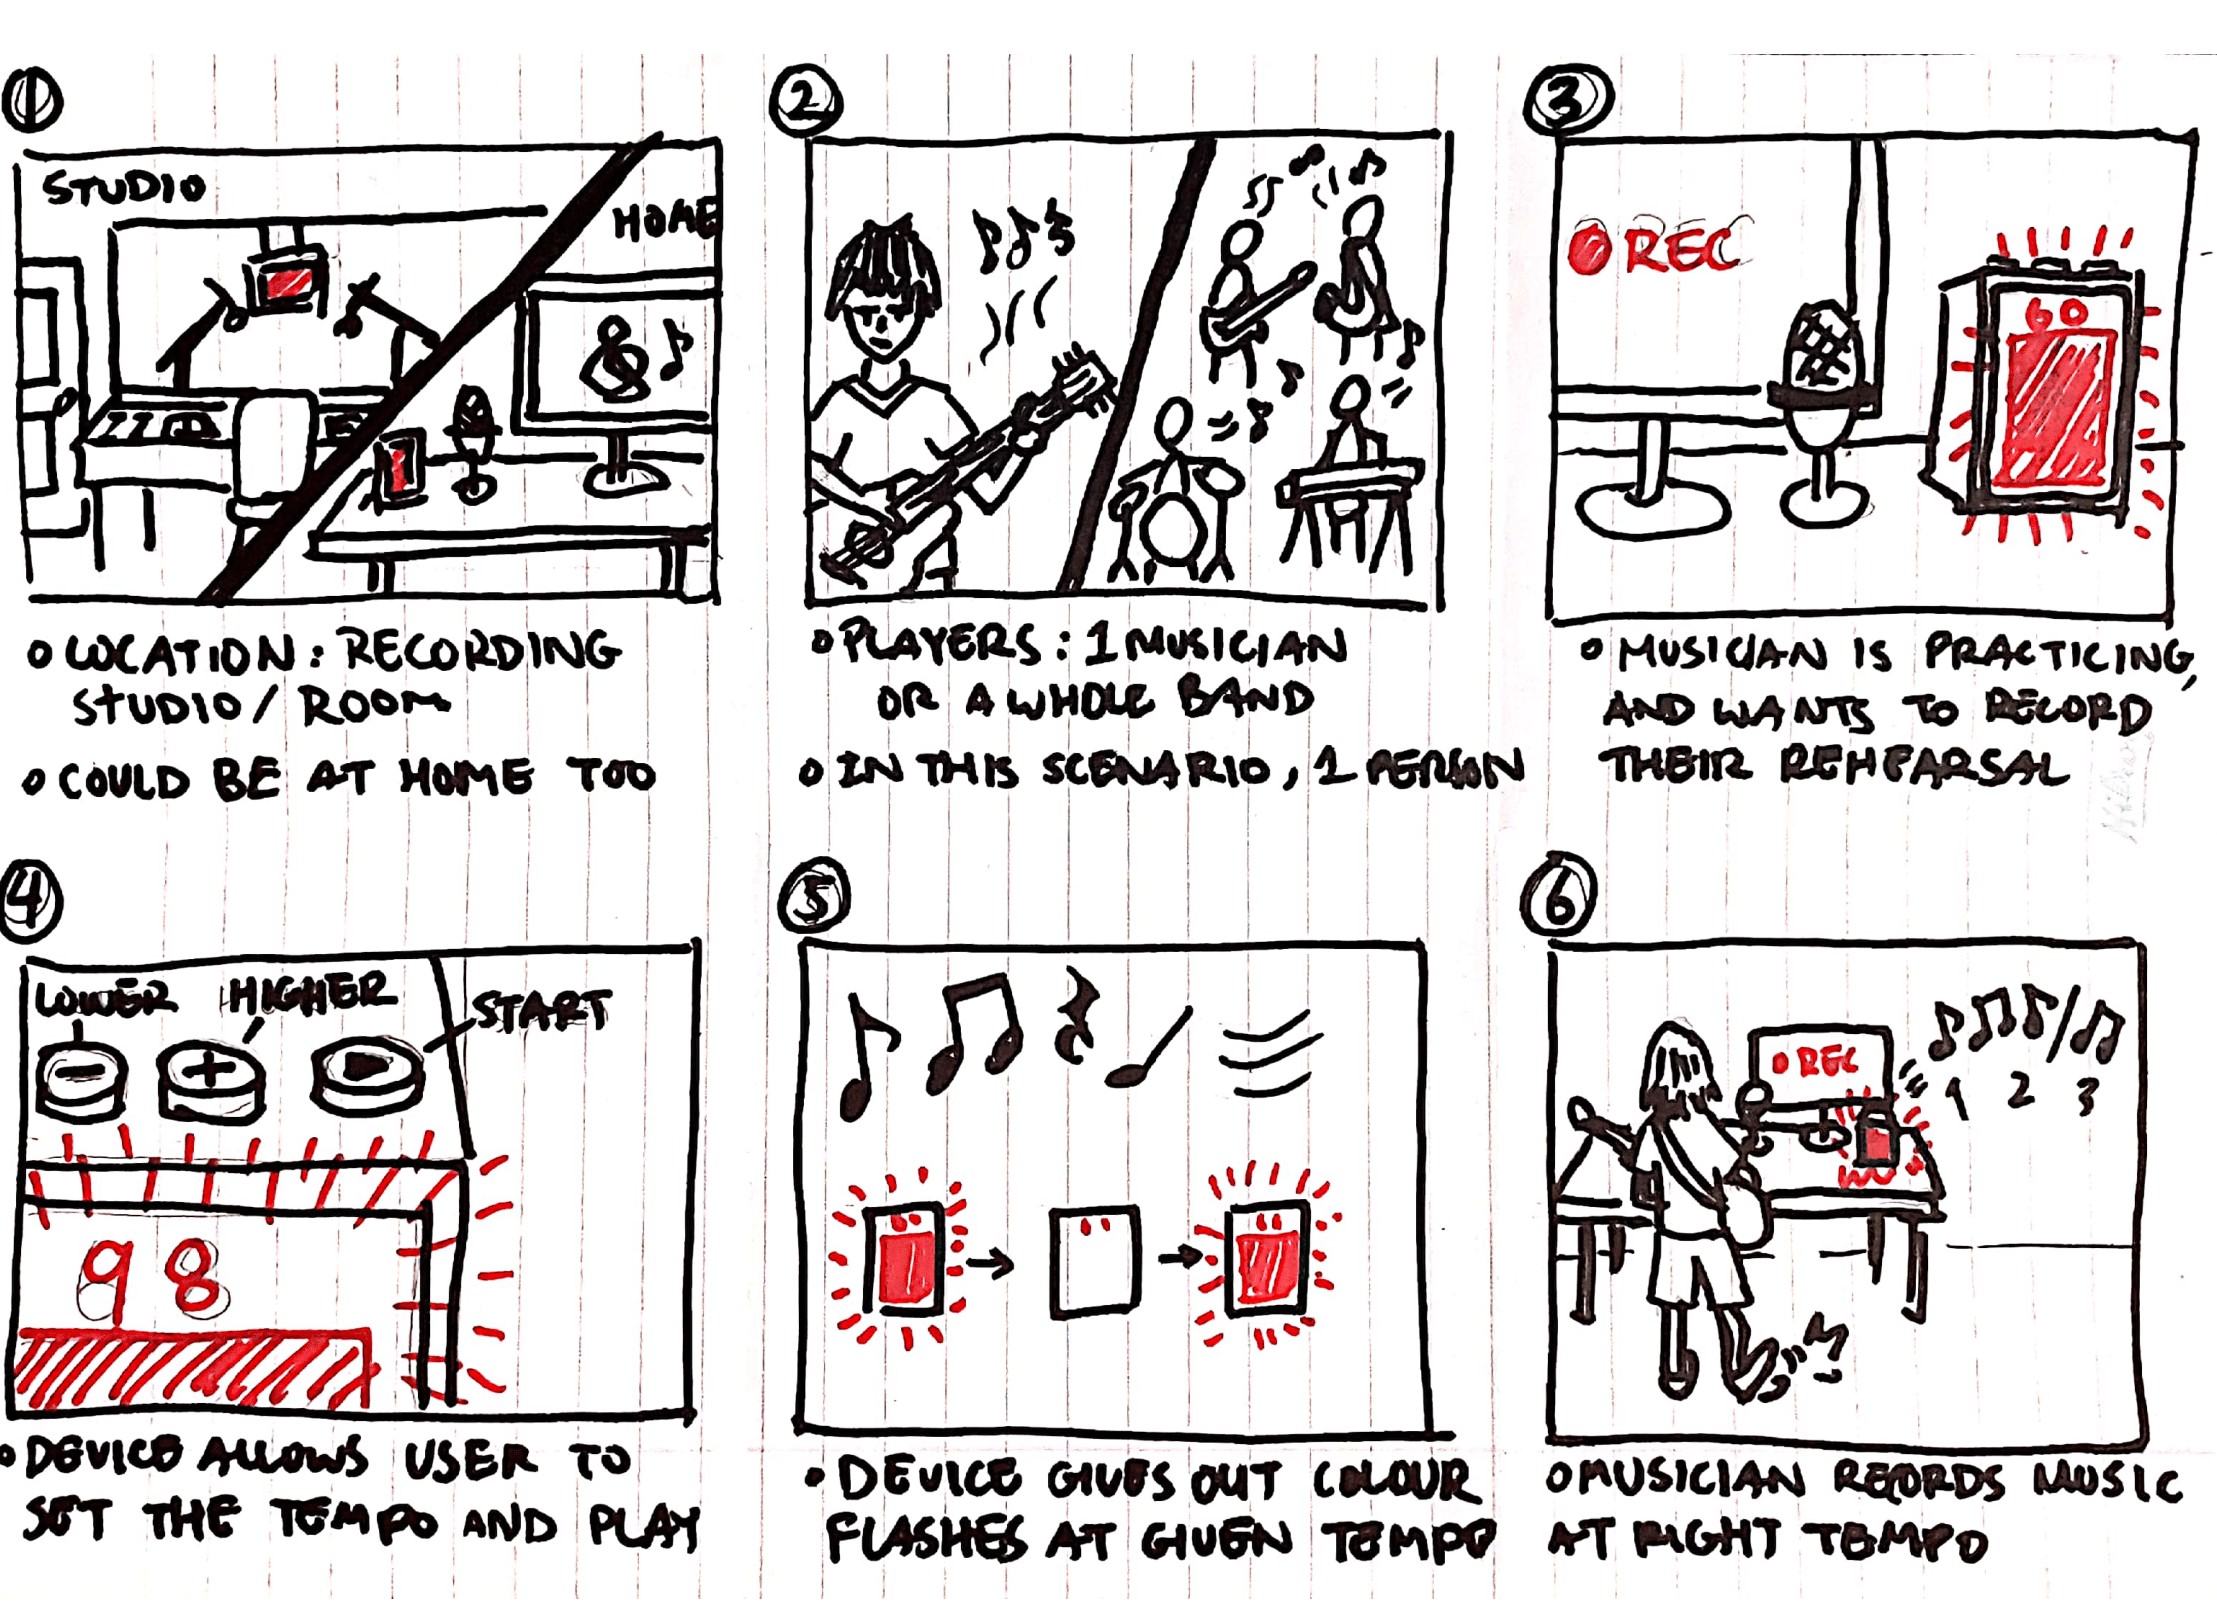 1
STUDIO
HOME
o LOCATION: RECORDING
STUDIO/ROOM
o COULD BE AT HOME TOO
2
o PLAYERS: 1 MUSICIAN
OR A WHOLE BAND
o IN THIS SCENARIO, 1 PERSON
3
REC
60
o MUSICIAN IS PRACTICING,
AND WANTS TO RECORD
THEIR REHEARSAL
4
LOWER HIGHER
START
98
o DEVICE ALLOWS USER TO
SET THE TEMPO AND PLAY
5
• DEVICE GIVES OUT COLOUR
FLASHES AT GIVEN TEMPO
6
REC
1 2 3
o MUSICIAN RECORDS MUSIC
AT RIGHT TEMPO